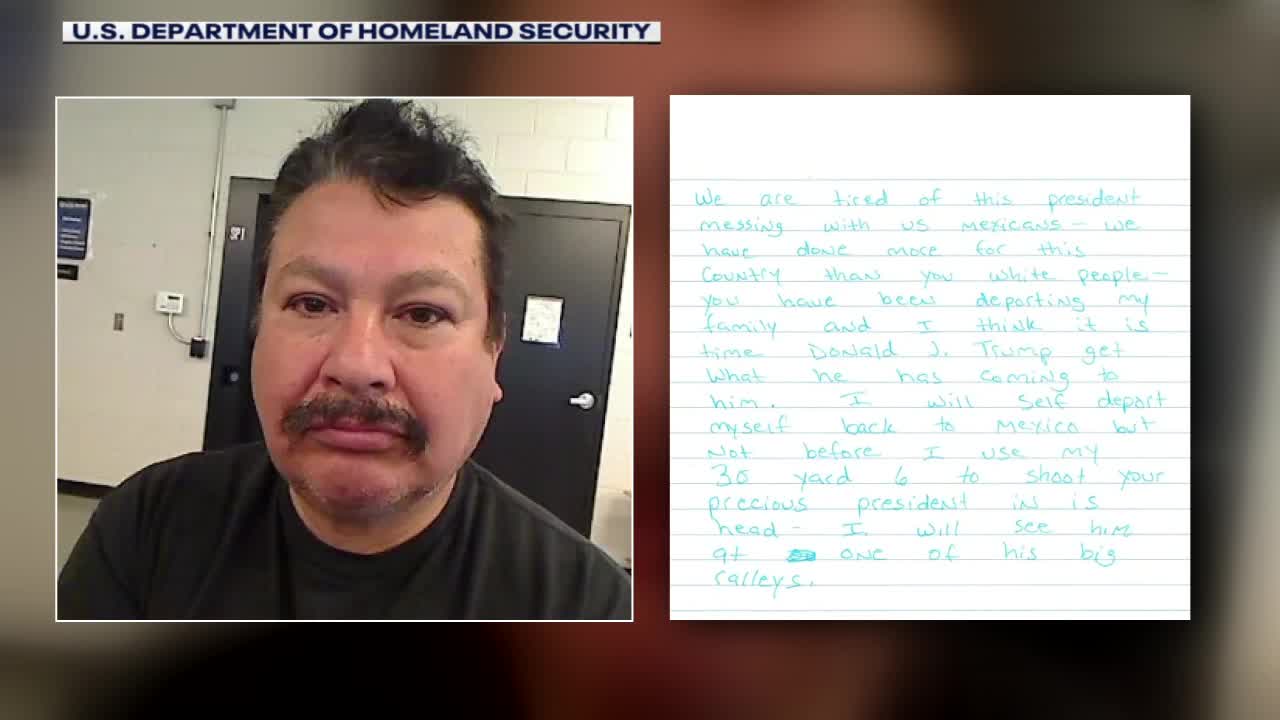 U.S. DEPARTMENT OF HOMELAND SECURITY
SP1
We are tired of this president
messing with us mexicans — we
have done more for this
Country than you white people —
you have been deporting my
family and I think it is
time Donald J. Trump get
what he has coming to
him. I will self deport
myself back to Mexico but
not before I use my
30 yard 6 to shoot your
precious president in is
head - I will see him
at one of his big
ralleys.